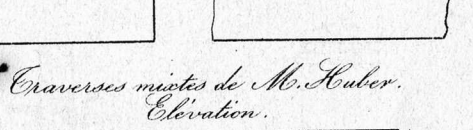 Traverses mixtes de M. Huber.
Elévation.